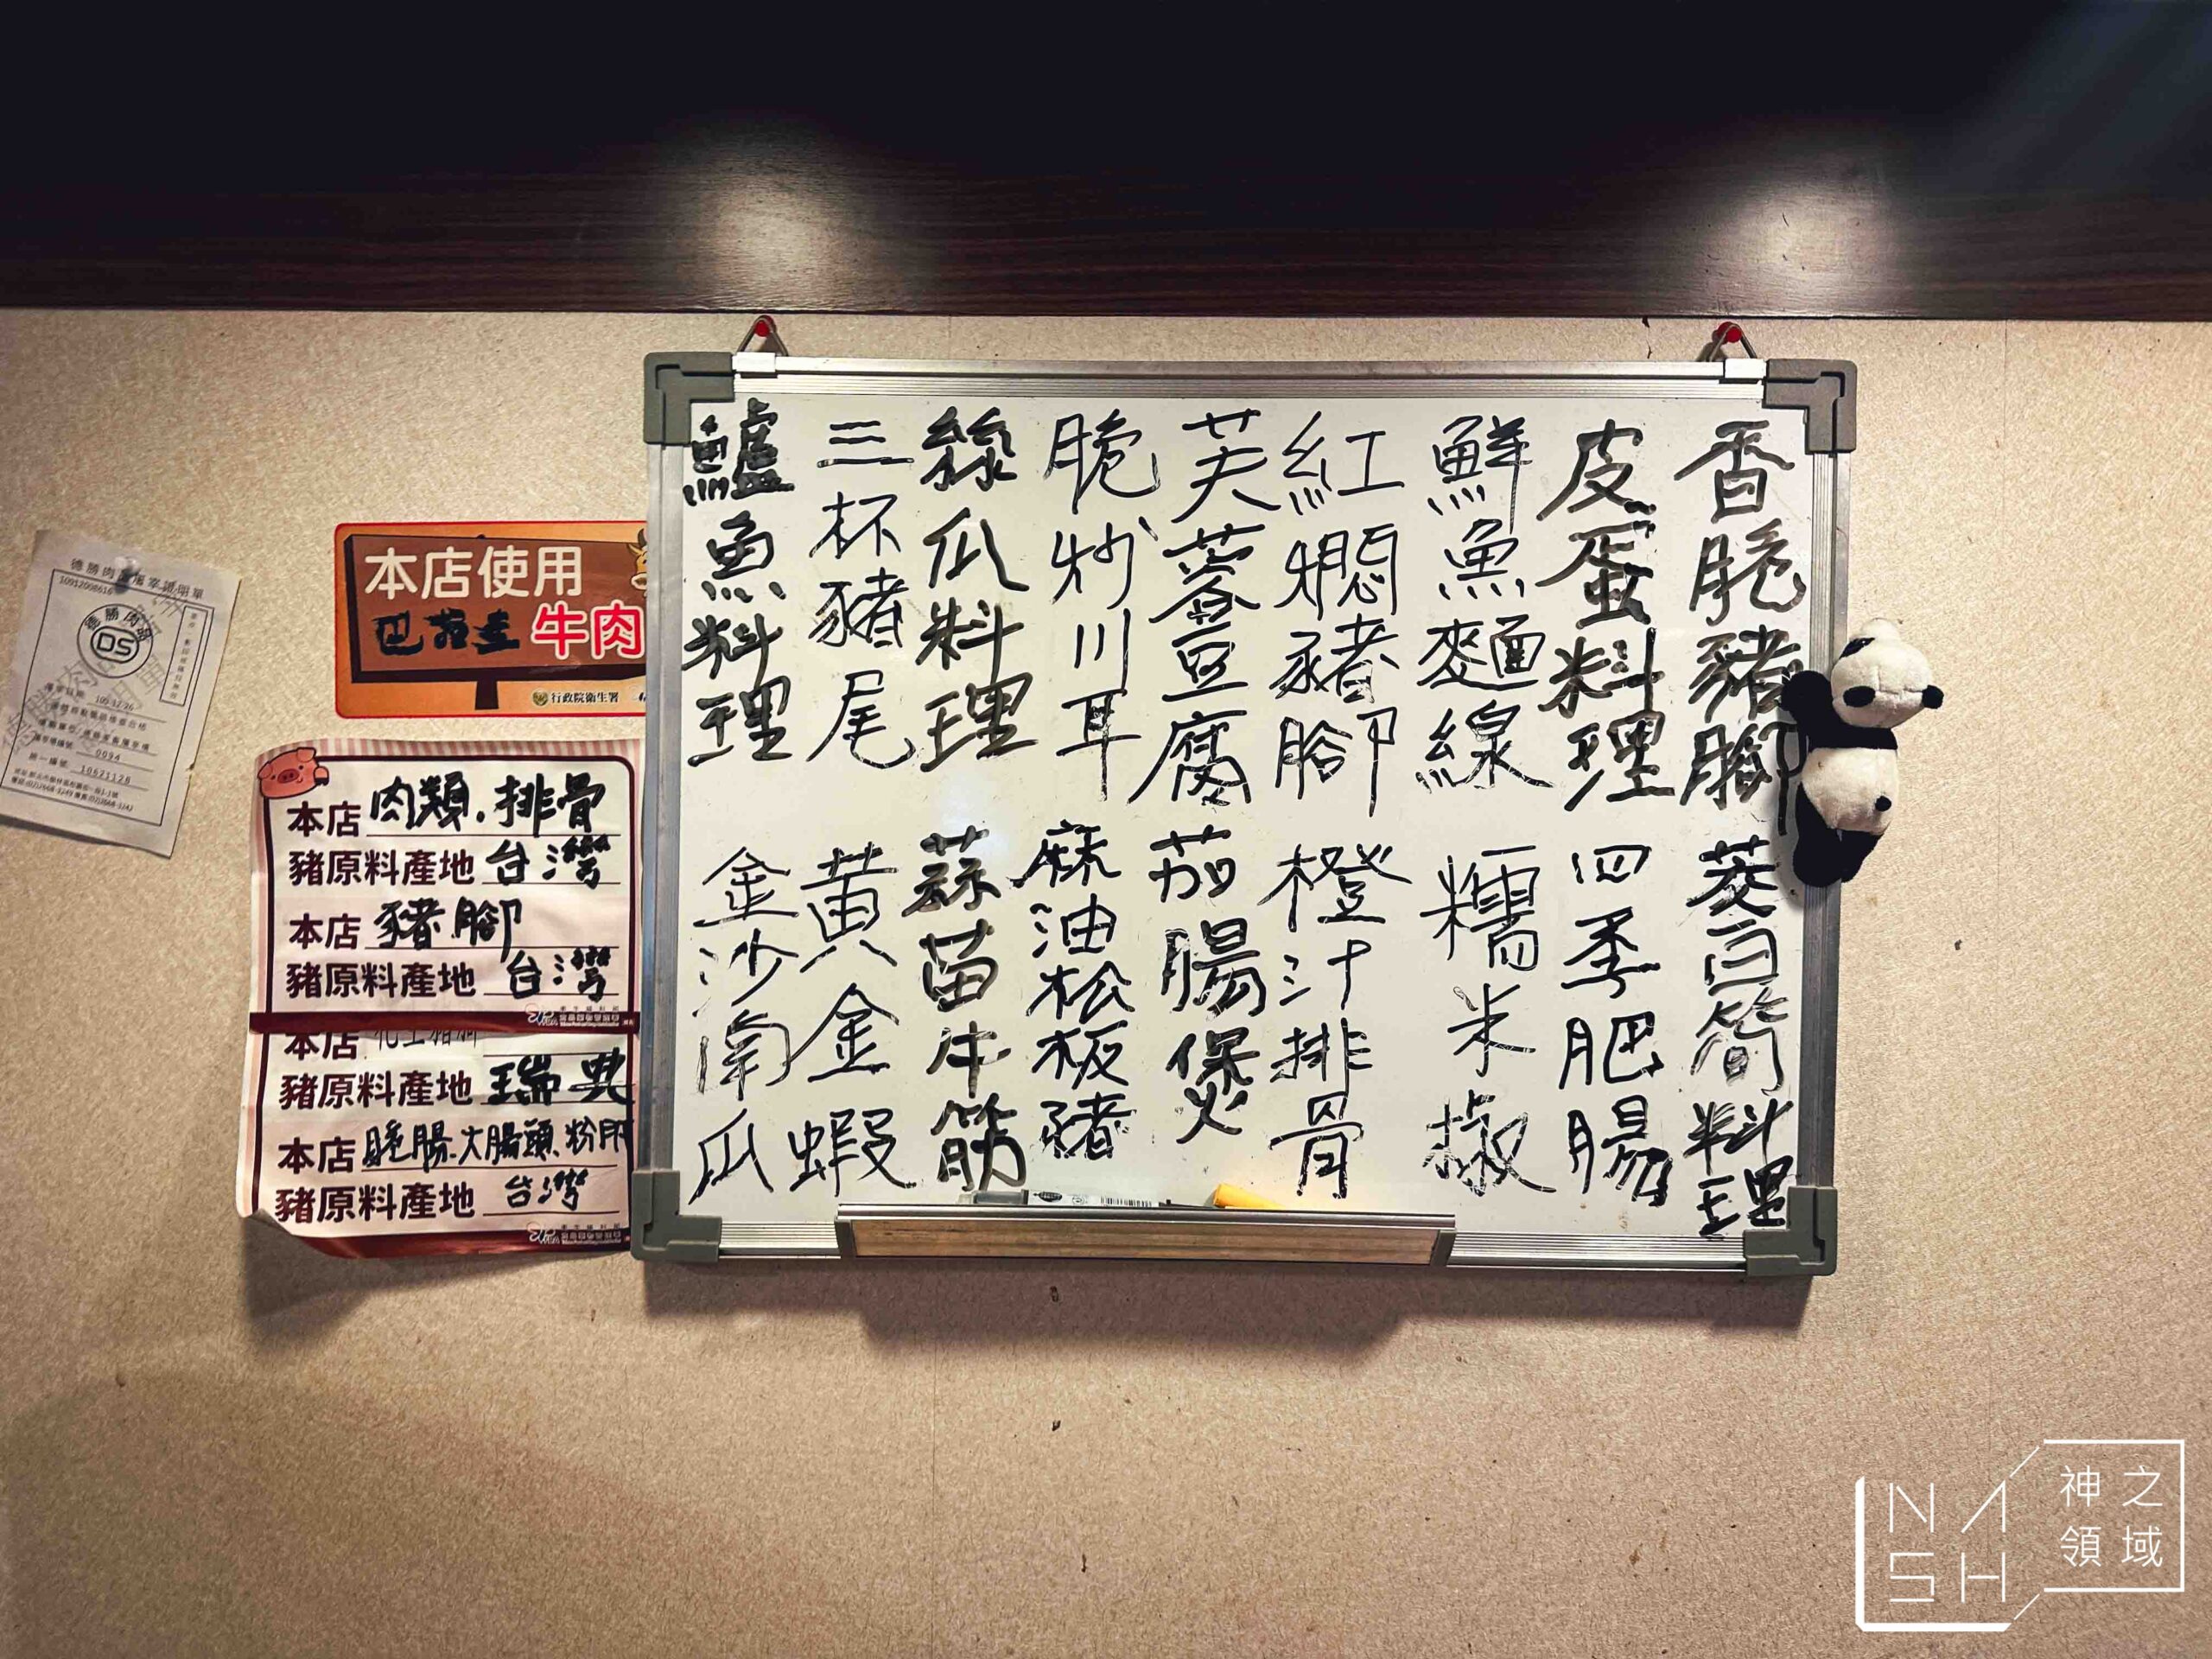 香脆豬腳
皮蛋料理
鮮魚麵線
紅燜豬腳
芙蓉豆腐
脆炒川耳
絲瓜料理
三杯豬尾
鱸魚料理
茭白筍料理
四季肥腸
糯米椒
橙汁排骨
茄腸煲
麻油松板豬
蒜苗牛筋
黃金蝦
金沙南瓜
本店使用
巴拉圭牛肉
行政院衛生署
本店肉類.排骨
豬原料產地台灣
本店豬腳
豬原料產地台灣
本店
豬原料產地瑞典
本店脆腸.大腸頭.粉肝
豬原料產地台灣
德勝肉品屠宰證明單
德勝肉品
DS
100.12.26
0094
10621128
NASH
神之
領域